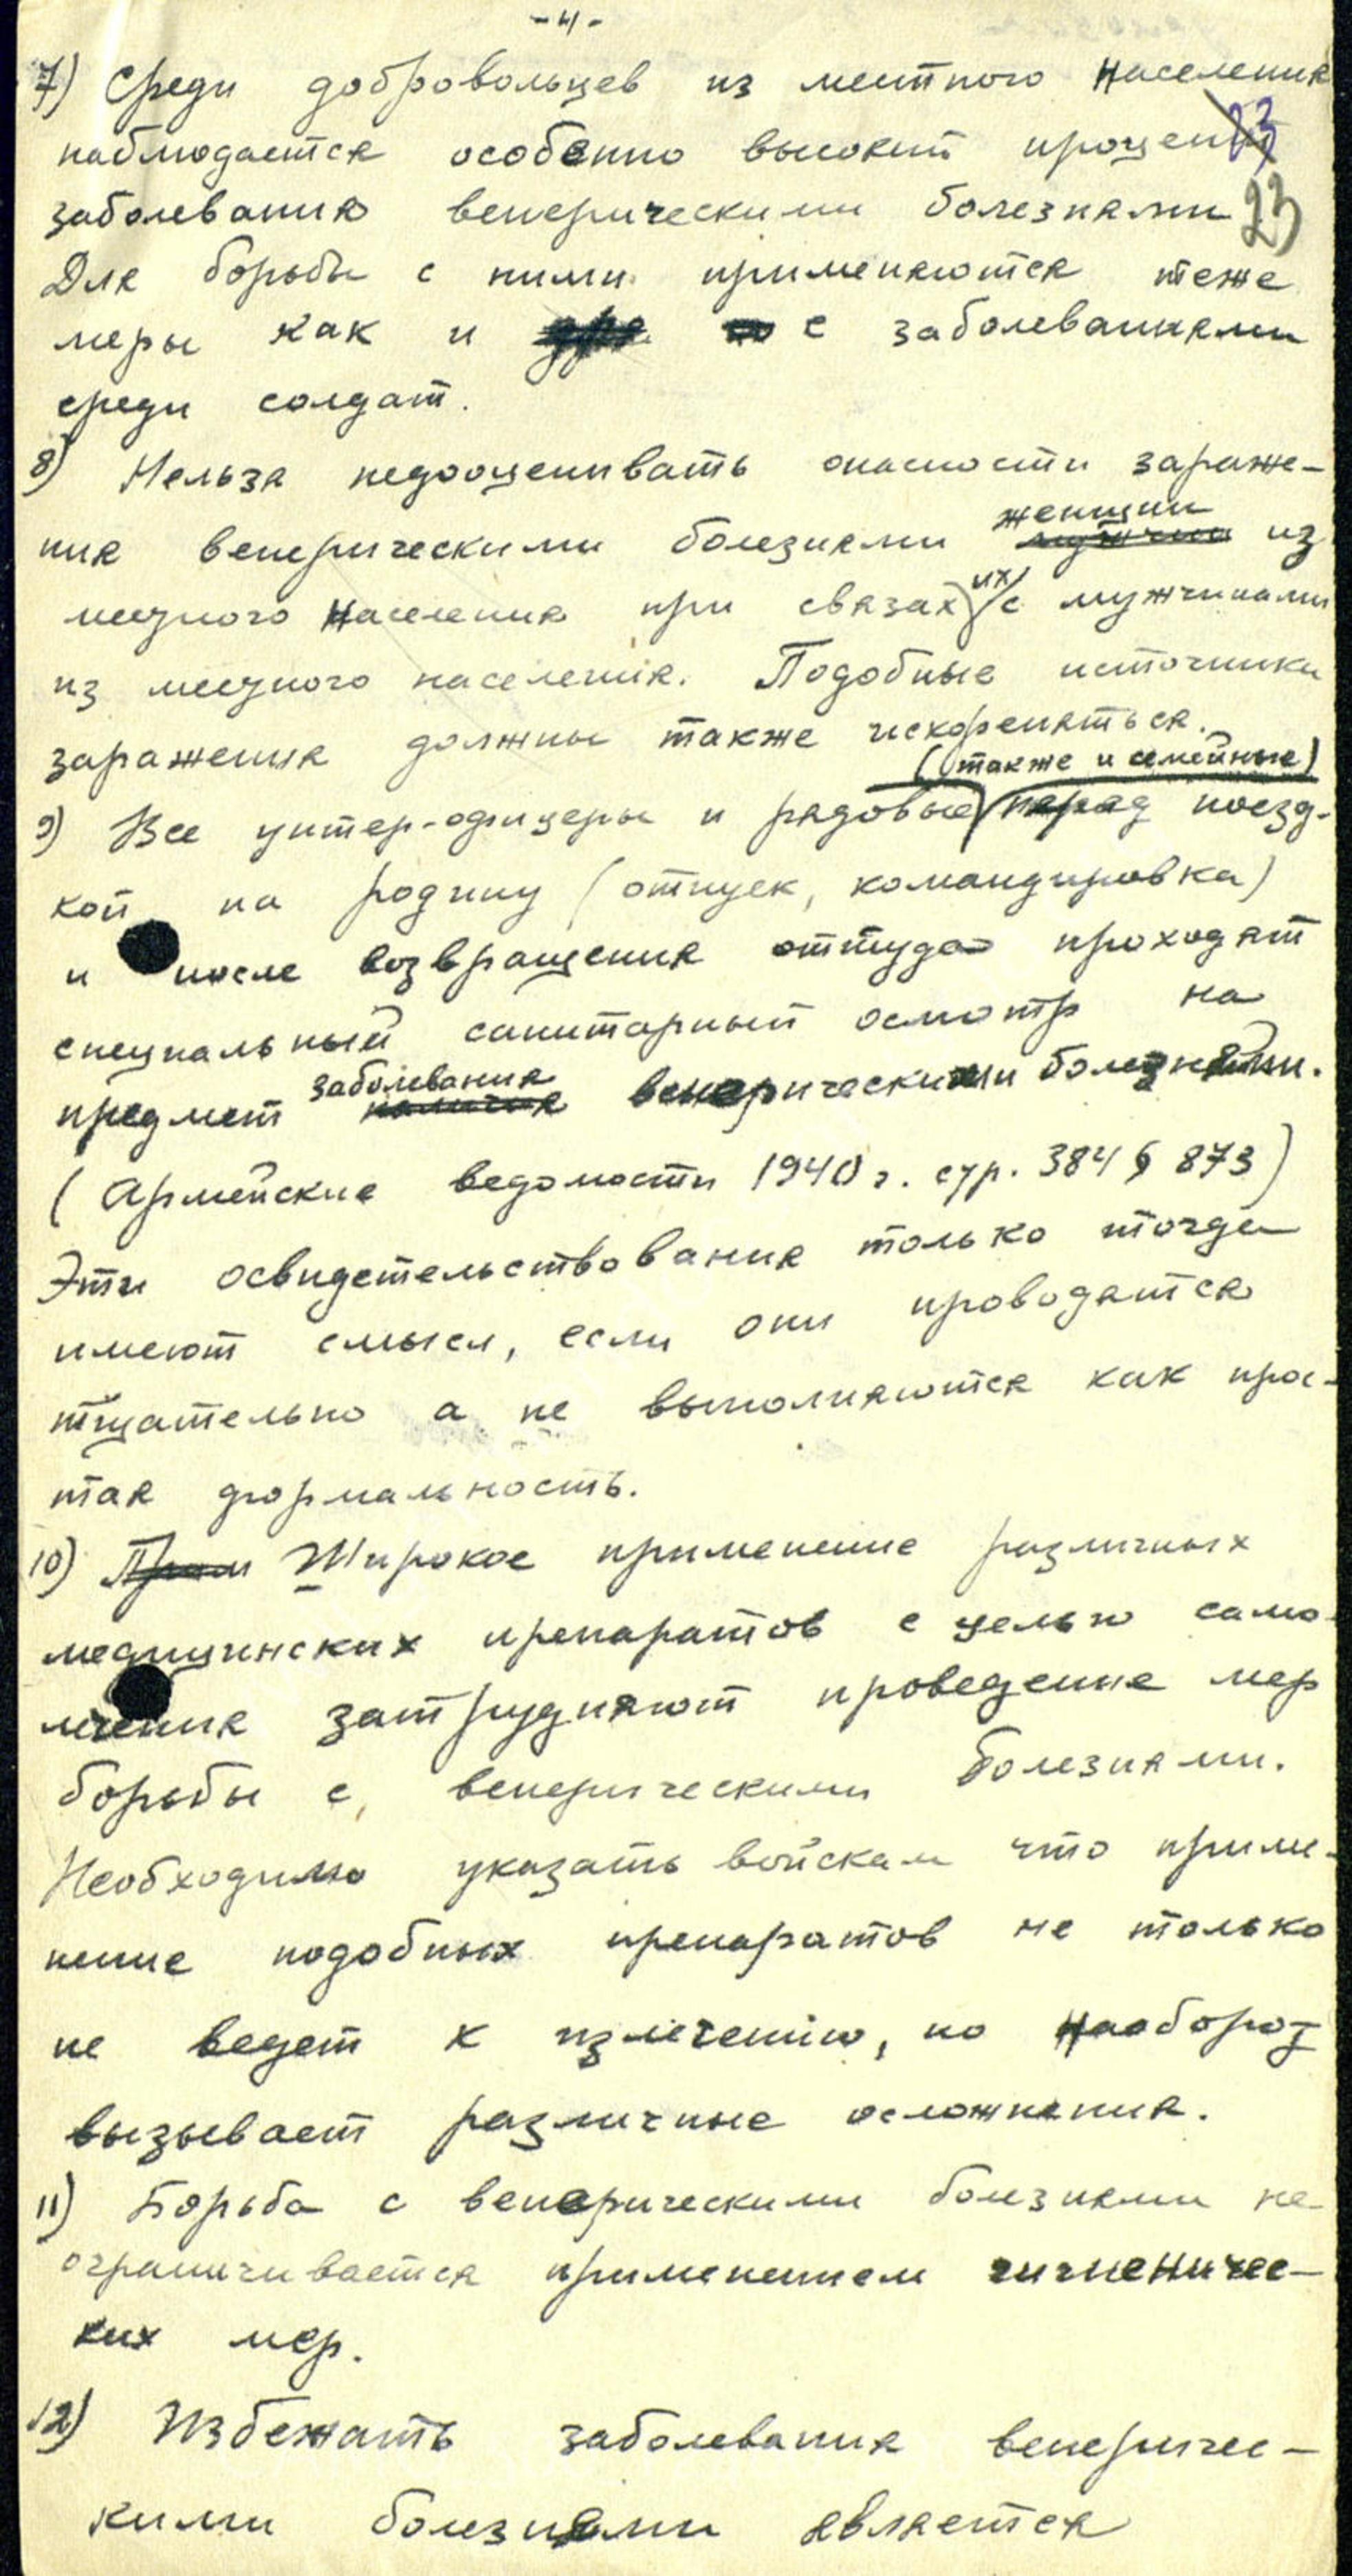 -4-
7) Среди добровольцев из местного населения
наблюдается особенно высокий процент
23
заболевания венерическими болезнями
23
Для борьбы с ними применяются теже
меры как и с заболеваниями
среди солдат.
8) Нельзя недооценивать опасности зараже-
женщин
ния венерическими болезнями мужчин из
их
месного населения при связах с мужчинами
из месного населения. Подобные источники
заражения должны также искореняться.
(также и семейные)
9) Все унтер-офицеры и рядовые перед поезд-
кой на родину (отпуск, командировка)
и после возвращения оттуда проходят
специальный санитарный осмотр на
заболевания
предмет наличия венерическими болезнями.
(Армейские ведомости 1940 г. стр. 384 § 873)
Эти освидетельствования только тогда
имеют смысл, если они проводятся
тщательно а не выполняются как прос-
тая формальность.
10) Прим Широкое применение различных
медицинских препаратов с целью само-
лечения затрудняют проведение мер
борьбы с венерическими болезнями.
Необходимо указать войскам что приме-
нение подобных препаратов не только
не ведет к излечению, но наоборот
вызывает различные осложнения.
11) Борьба с венерическими болезнями не
ограничивается применением гигиеничес-
ких мер.
12) Избежать заболевания венеричес-
кими болезнями является